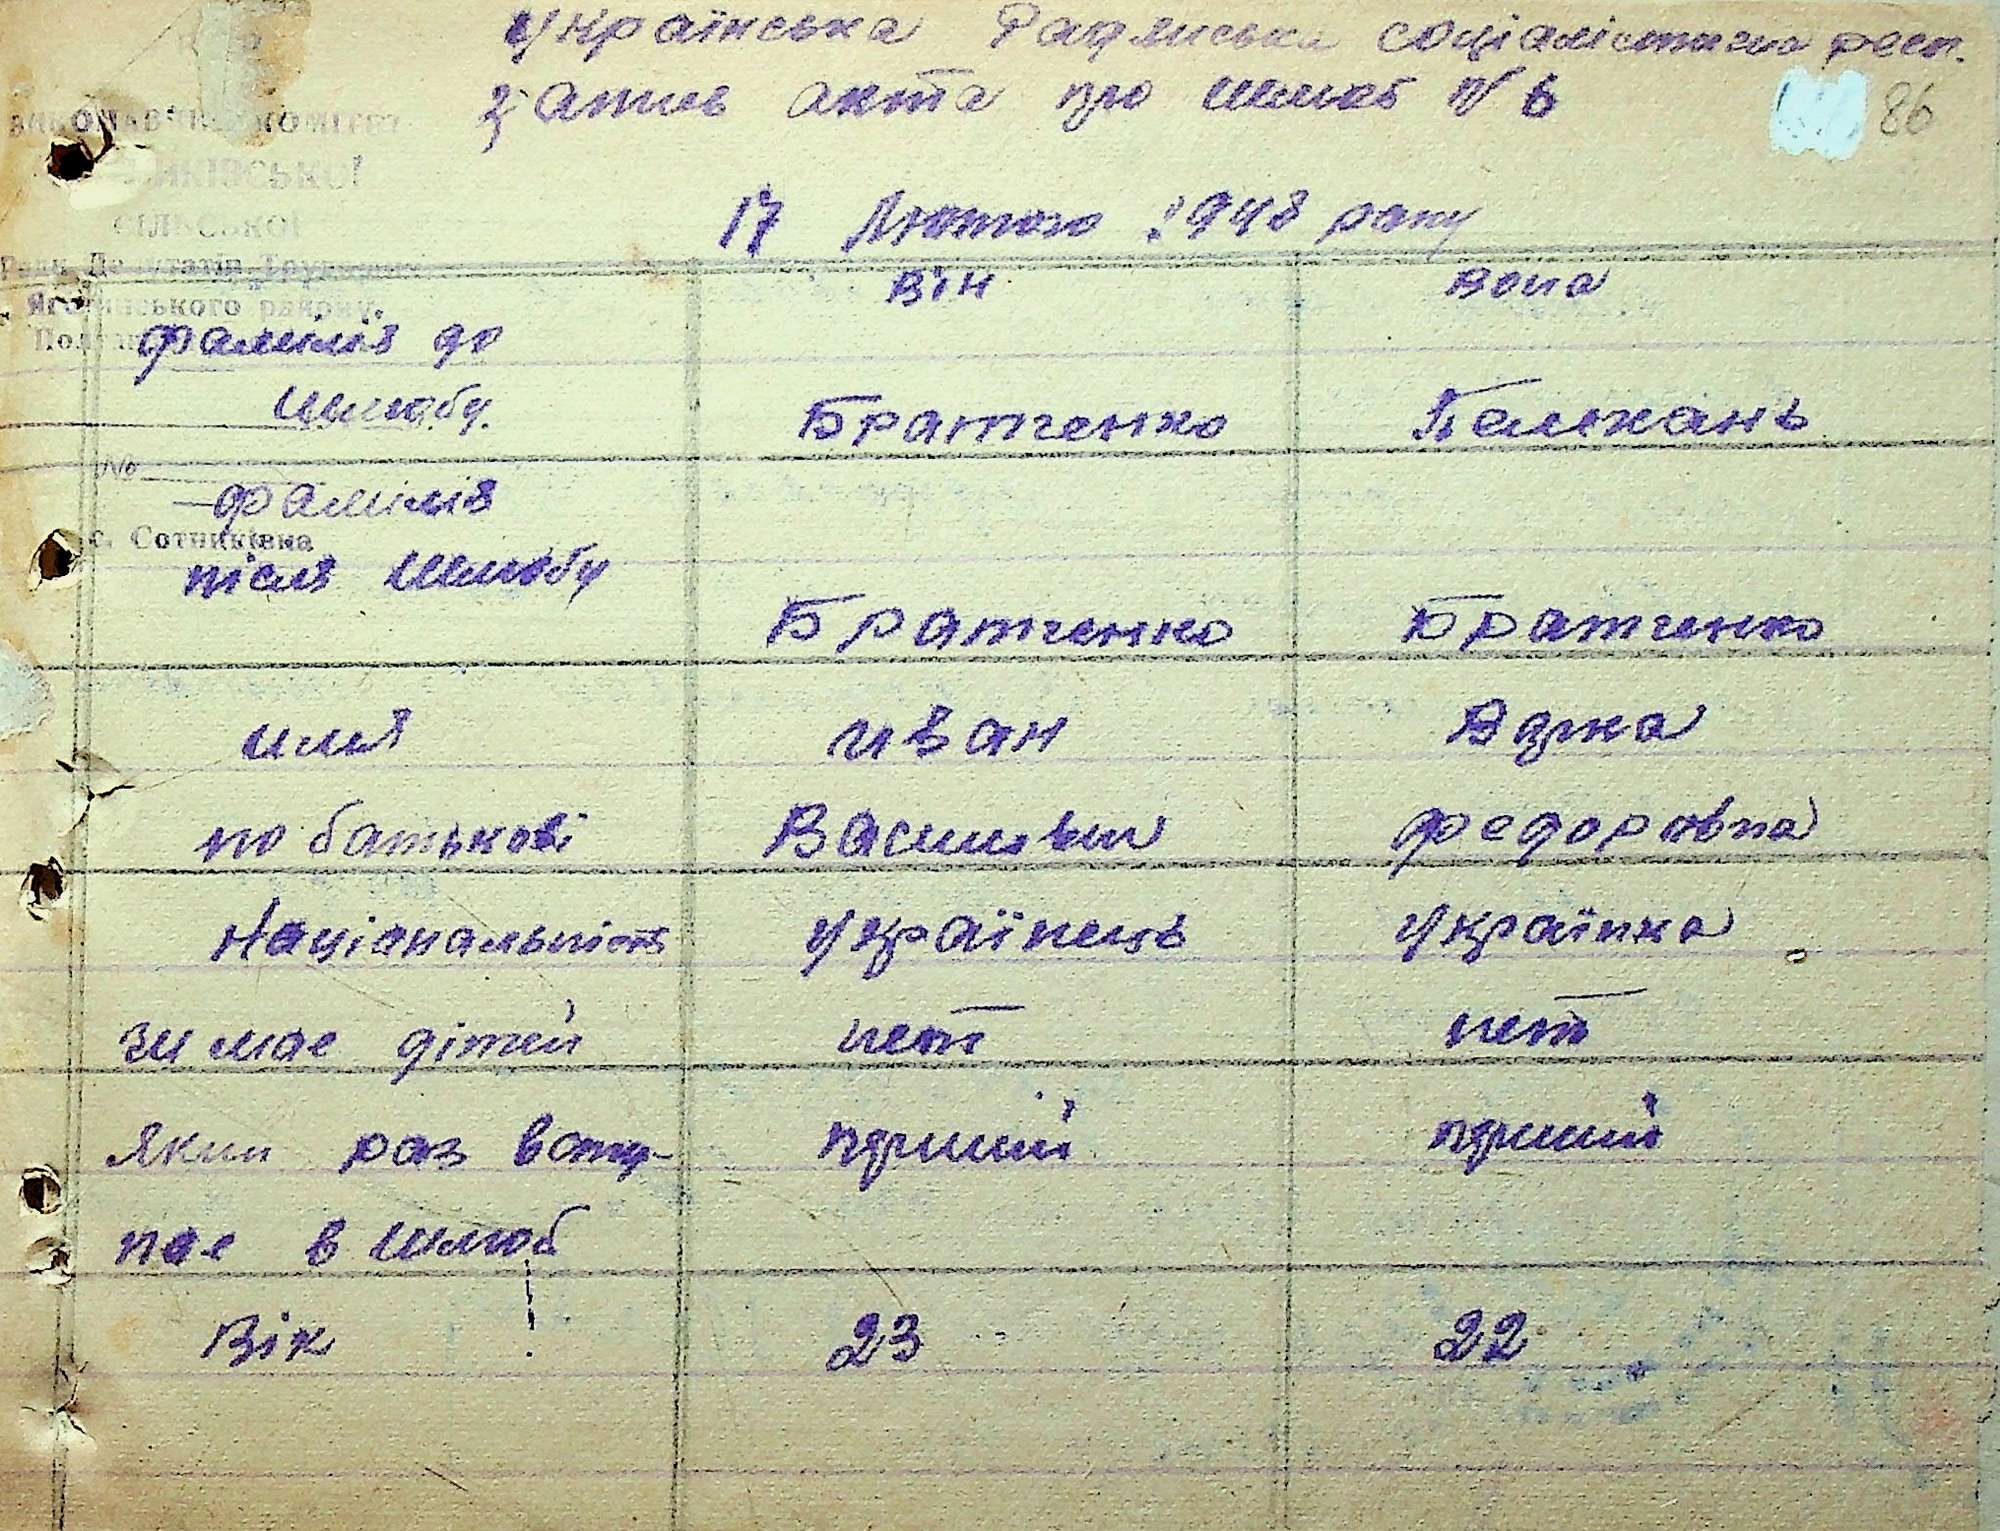 Українська Радянська соціалістична респ.
Запись акта про шлюб № 6
86
виконавчий комітет
Сотниківської
сільської
Ради Депутатів Трудящих
Яготинського району,
17 Лютого 1948 року
він вона
фамілія до
шлюбу. Братченко Пелюхань
№
фамілія
с. Сотниківна
після шлюбу
Братченко Братченко
имя иван
по батькові Васильви федоровна
Національність Українець Українка
зи мае дітей нет нет
Який раз всту- перший перший
пае в шлюб
Вік 23 22